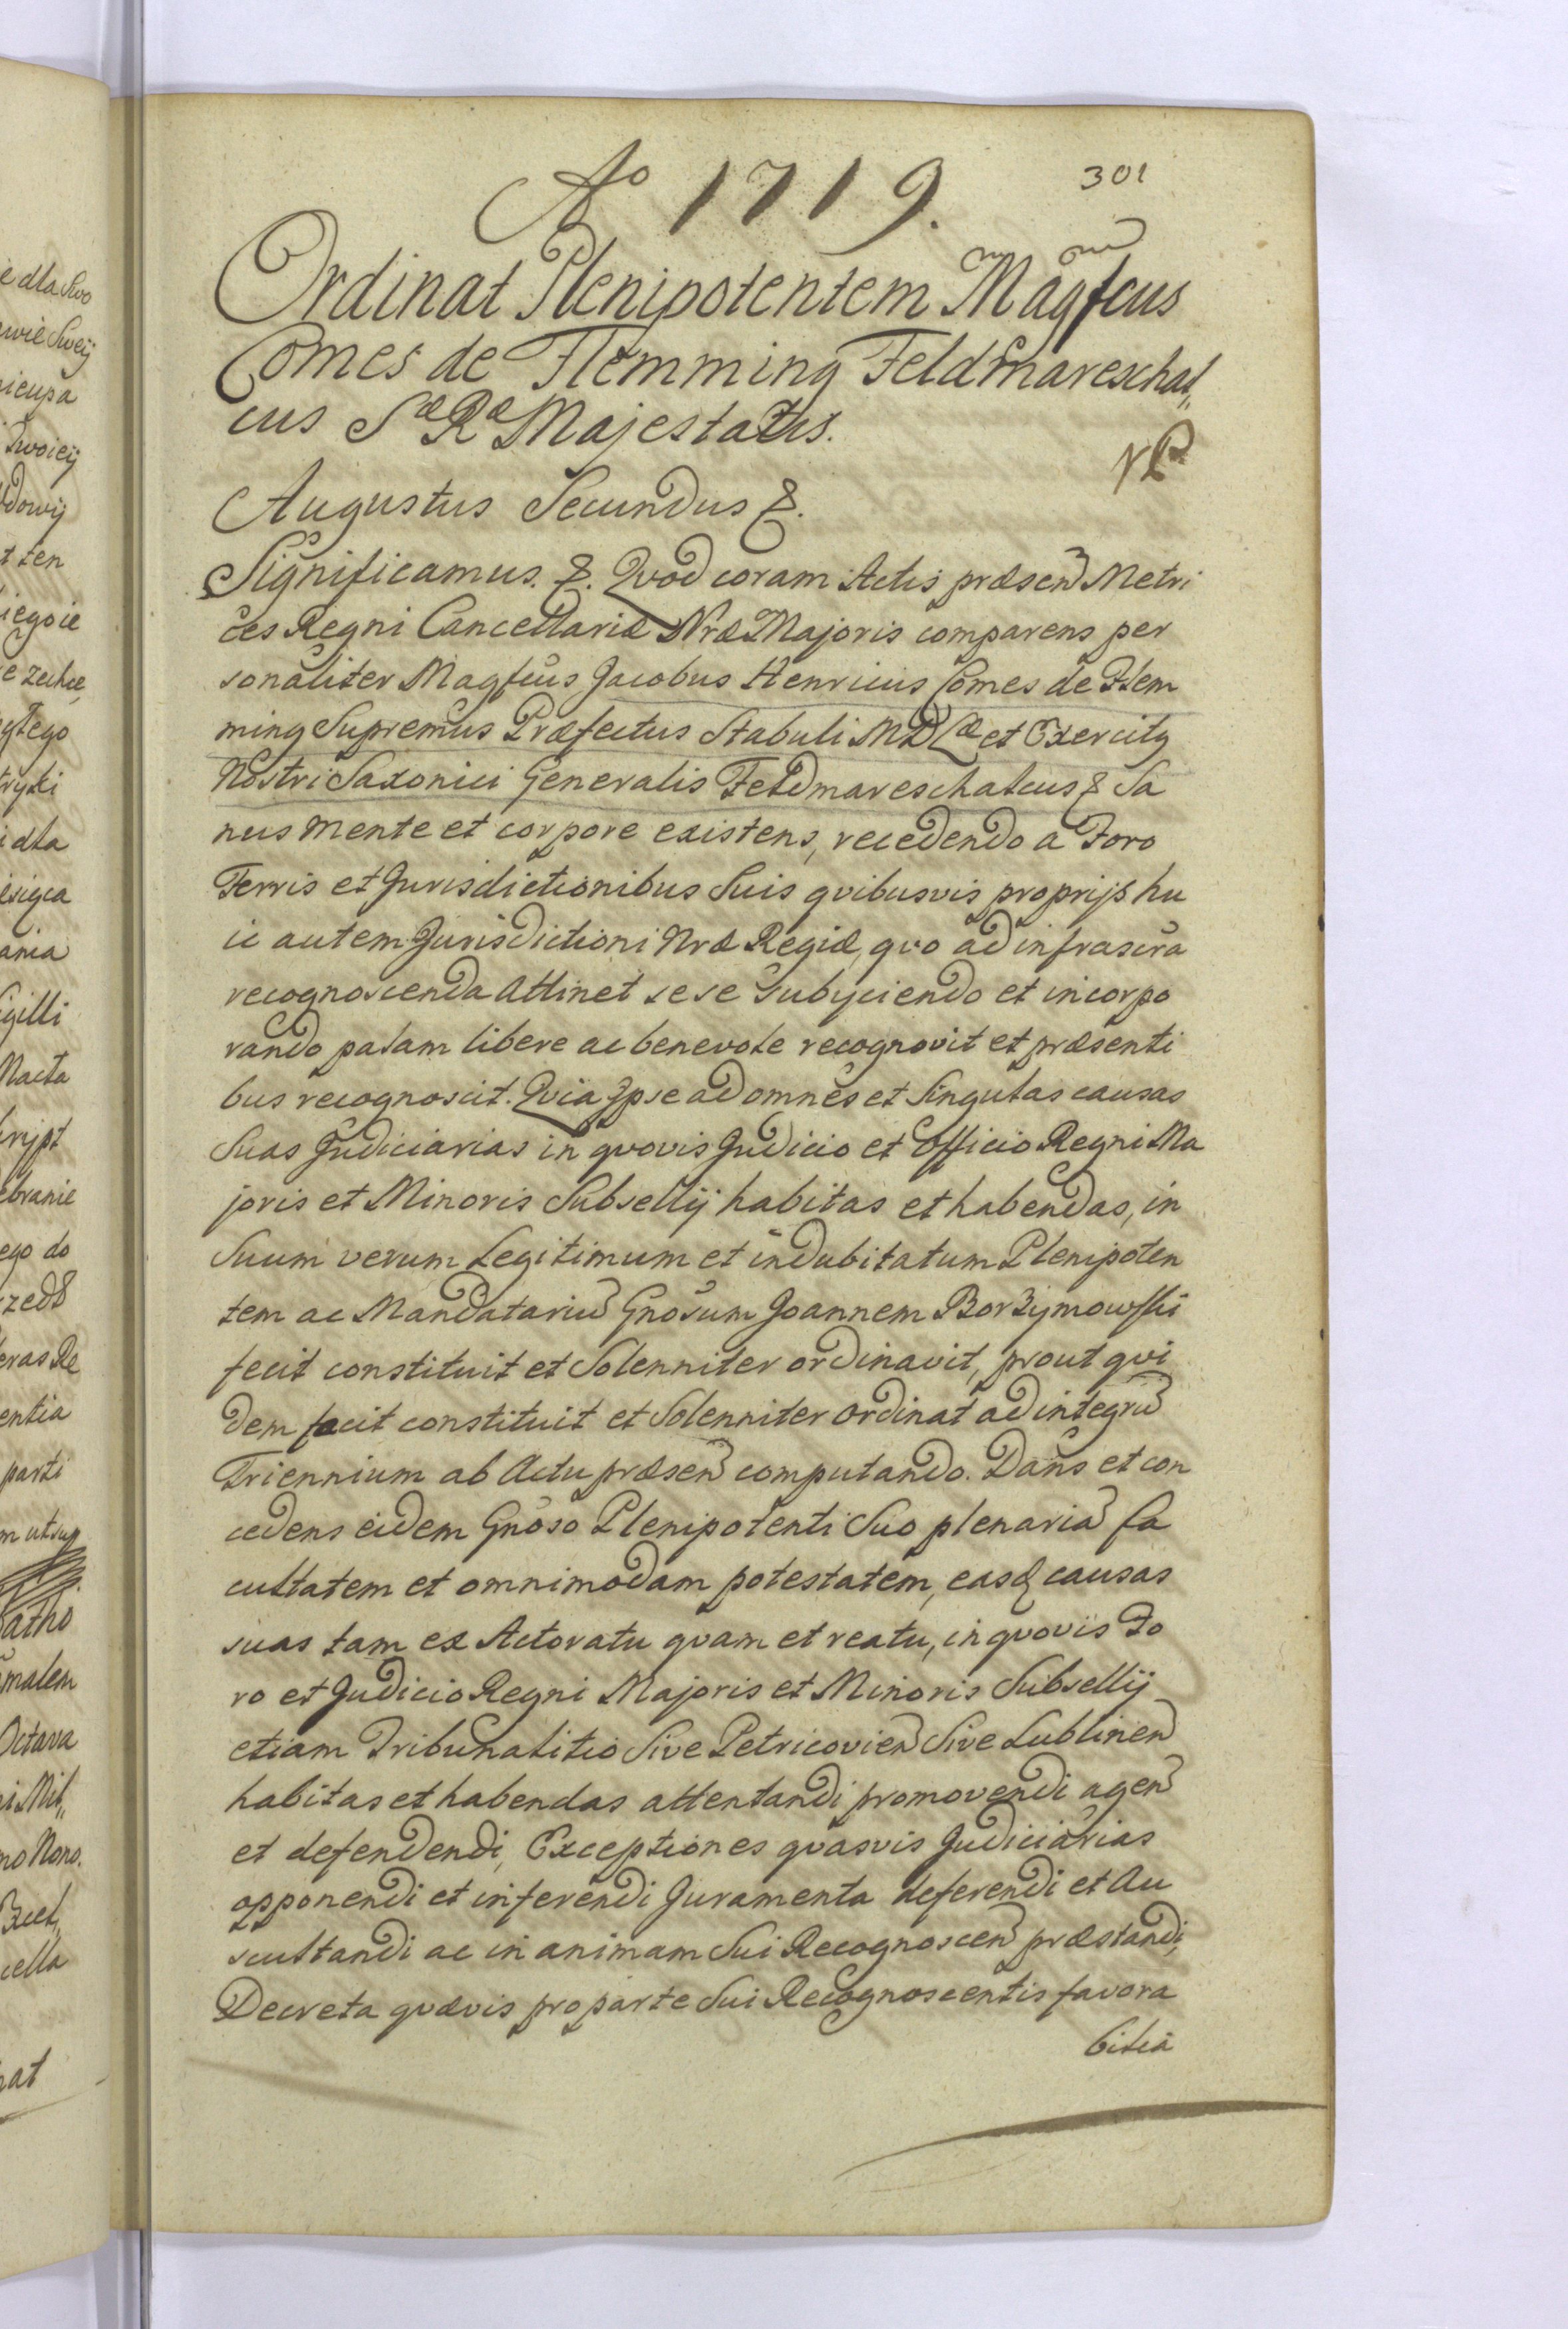 Ao 1719.
301
Ordinat Plenipotentem Magfcus
Comes de Flemming Feldmareschal„
cus Sæ Ræ Majestatis.
Augustus Secundus &.
Significamus. &. Qvod coram Actis præsen Metri
ces Regni Cancellariæ Nræ Majoris comparens per
sonaliter Magfcus Jacobus Henricus Comes de Flem
ming Supremus Præfectus Stabuli M D Læ et Exercitq
Nostri Saxonici Generalis Feldmareschalcus & Sa
nus mente et corpore existens, recedendo a Foro
Terris et Jurisdictionibus Suis qvibusvis proprijs hu
ic autem Jurisdictioni Nræ Regiæ, qvo ad infrascra
recognoscenda attinet sese Subyciendo et incorpo
rando palam libere ac benevole recognovit et præsenti
bus recognoscit. Qvia Ipse ad omnes et Singulas causas
Suas Judiciarias in qvovis Judicio et Officio Regni Ma
joris et Minoris Subsellij habitas et habendas, in
Suum verum Legitimum et indubitatum Plenipoten
tem ac Mandatariu Gnosum Joannem Borzymowski
fecit constituit et Solenniter ordinavit, prout qvi
dem facit constituit et Solenniter ordinat ad integru
Triennium ab Actu præsen computando. Dans et con
cedens eidem Gnoso Plenipotenti Suo plenaria fa
cultatem et omnimodam potestatem, easq causas
suas tam ex Actoratu qvam et reatu, in qvovis Fo
ro et Judicio Regni Majoris et Minoris Subsellij
etiam Tribunalitio Sive Petricovien Sive Lublinen
habitas et habendas attentandi promovendi agen
et defendendi, Exceptiones qvasvis Judiciarias
opponendi et inferendi Juramenta deferendi et Au
scultandi ac in animam Sui Recognoscen præstandi,
Decreta qvævis pro parte Sui Recognoscentis favora
bilia
e dla Swo
wie Swey
Swoiey
dowy
t ten
iego ie
ytego
i dla
ania
igilli
Nacta
cript
ebranie
ego do
eras Re
entia
parti
m ut sup
malem
Octava
i Mil„
mo Nono.
cella